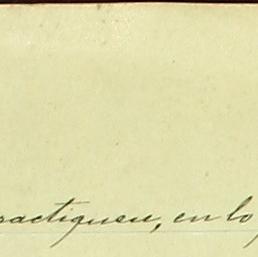 ractiquen, en lo